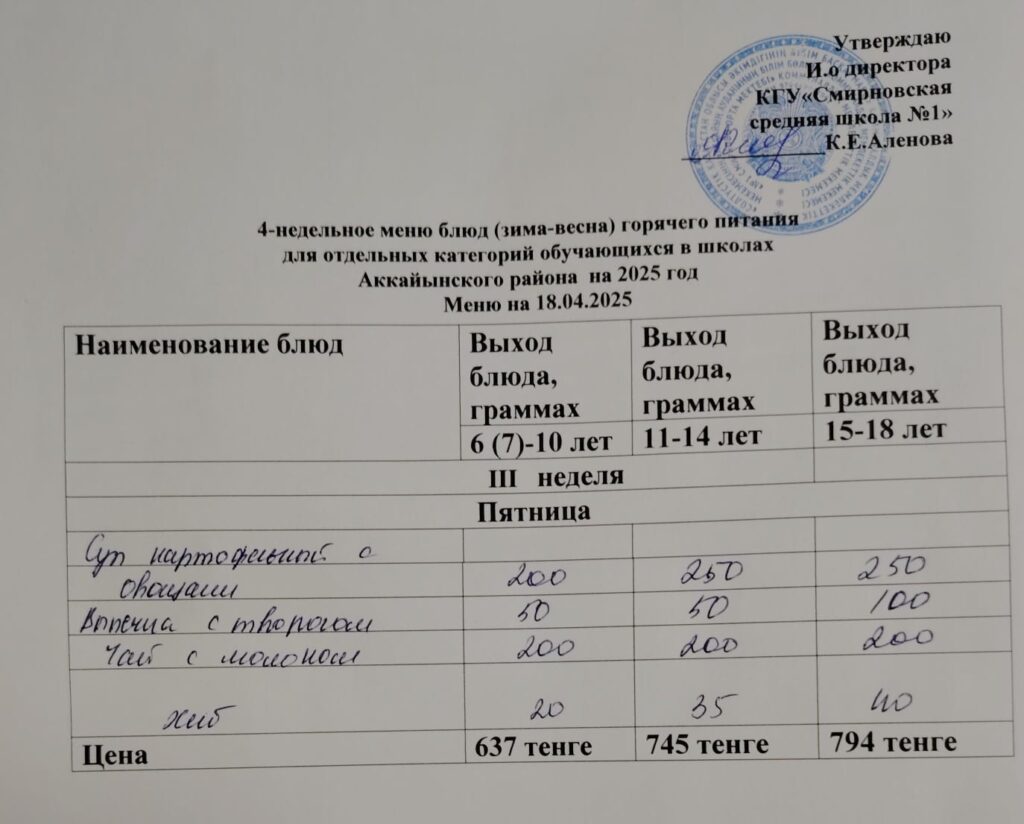 Утверждаю
И.о директора
КГУ«Смирновская
средняя школа №1»
К.Е.Аленова
4-недельное меню блюд (зима-весна) горячего питания
для отдельных категорий обучающихся в школах
Аккайынского района на 2025 год
Меню на 18.04.2025
Наименование блюд Выход блюда, граммах Выход блюда, граммах Выход блюда, граммах
6 (7)-10 лет 11-14 лет 15-18 лет
III неделя
Пятница
Суп картофельный с
овощами 200 250 250
Выпечка с творогом 50 50 100
Чай с молоком 200 200 200
Хлеб 20 35 40
Цена 637 тенге 745 тенге 794 тенге